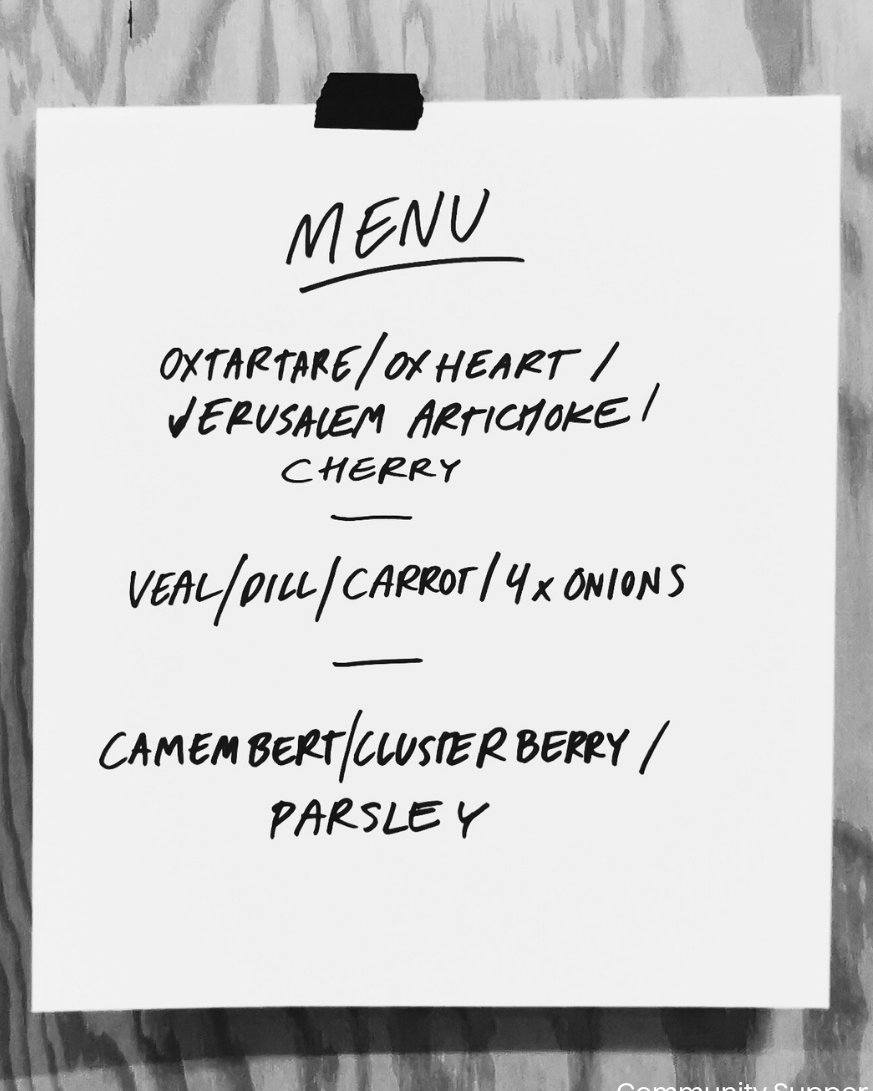 MENU
OXTARTARE/OX HEART /
JERUSALEM ARTICHOKE /
CHERRY
VEAL/DILL/CARROT/4x ONIONS
CAMEMBERT/CLUSTERBERRY /
PARSLEY
Community Supper